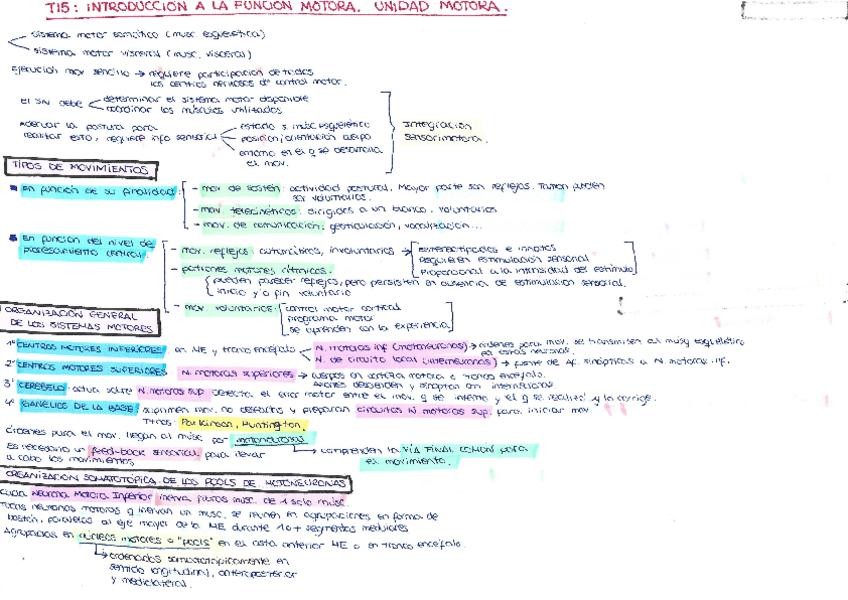 T15: INTRODUCCIÓN A LA FUNCIÓN MOTORA. UNIDAD MOTORA.
sistema motor somático (musc esquelética)
sistema motor visceral (musc. visceras)
Ejecución mov sencillo → requiere participación de todos
los centros nerviosos de control motor.
El SN debe
determinar el sistema motor disponible
coordinar los músculos utilizados
Adecuar la postura para
realizar esto, requiere info sensorial
estado s. musc esquelético
posición, orientación cuerpo
entorno en el q se desarrolla
el mov.
Integración
sensorimotora.
TIPOS DE MOVIMIENTOS
En función de su finalidad:
- mov de sostén: actividad postural. Mayor parte son reflejos. También pueden
ser voluntarios.
- mov. telecinéticos: dirigidos a un blanco. voluntarios
- mov. de comunicación: gesticulación, vocalización...
En función del nivel de
procesamiento central:
- mov. reflejos: automáticos, involuntarios →
estereotipados e innatos
Requieren estimulación sensorial
Proporcional a la intensidad del estímulo
- patrones motores rítmicos.
pueden parecer reflejos, pero persisten en ausencia de estimulación sensorial.
inicio y/o fin voluntario
- mov voluntarios:
control motor cortical
programa motor
se aprenden con la experiencia
ORGANIZACIÓN GENERAL
DE LOS SISTEMAS MOTORES
1º CENTROS MOTORES INFERIORES en ME y tronco encéfalo
N. motoras inf (motoneuronas) → órdenes para mov. se transmiten al musc esquelético
por estas neuronas.
N. de circuito local (interneuronas) → fuente de af. sinápticas a N. motoras inf.
2º CENTROS MOTORES SUPERIORES N. motoras superiores → cuerpos en corteza motora o tronco encéfalo.
Axones descienden y sinaptan con interneuronas
3º CEREBELO actúa sobre N. motoras sup. detecta el error motor entre el mov. q se intenta y el q se realizó y lo corrige.
4º GANGLIOS DE LA BASE suprimen mov. no deseados y preparan circuitos N motoras sup. para iniciar mov
Tnos: Parkinson, Huntington.
Órdenes para el mov. llegan al músc por motoneuronas
→ comprenden la VÍA FINAL COMÚN para
el movimiento.
Es necesario un feed-back sensorial para llevar
a cabo los movimientos
ORGANIZACIÓN SOMATOTÓPICA DE LOS POOLS DE MOTONEURONAS
Cada Neurona Motora Inferior inerva fibras musc. de 1 solo musc.
Todas neuronas motoras q inervan un musc. se reúnen en agrupaciones en forma de
bastón, paralelas al eje mayor de la ME durante 1 o + segmentos medulares
Agrupadas en núcleos motores o "pools" en el asta anterior ME o en tronco encéfalo.
→ ordenados somatotópicamente en
sentido longitudinal, anteroposterior
y mediolateral.